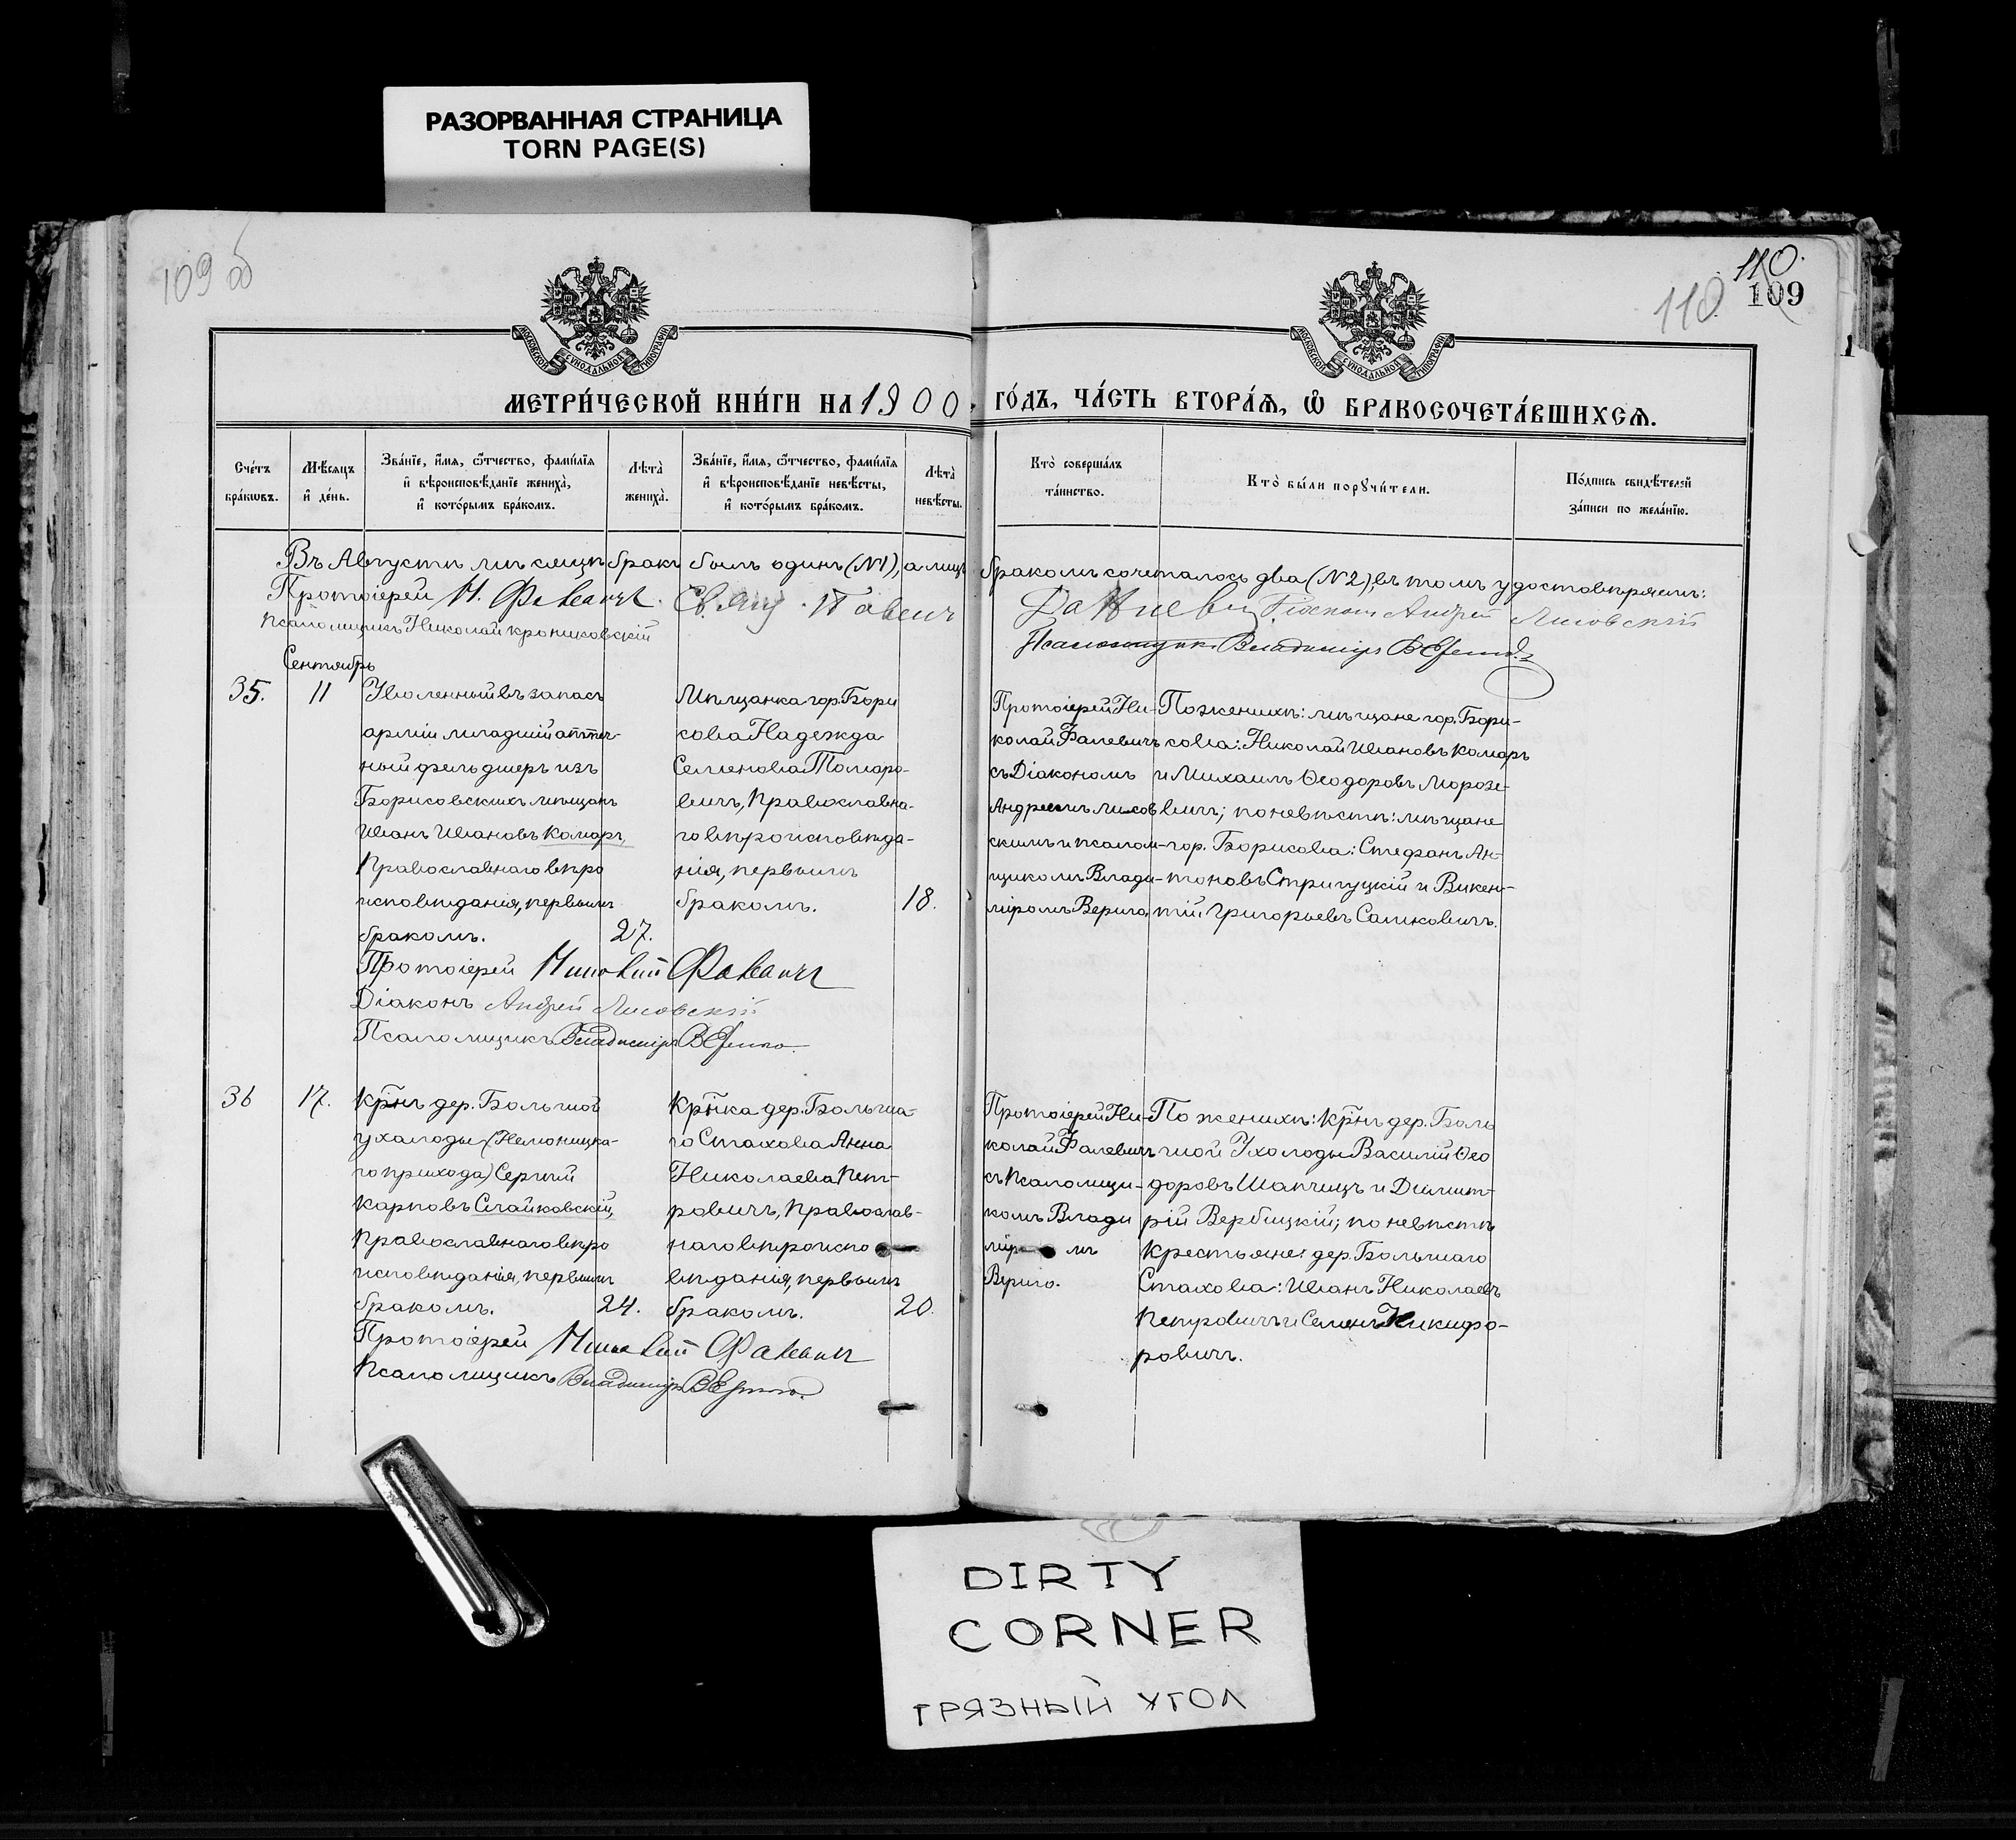 РАЗОРВАННАЯ СТРАНИЦА
TORN PAGE(S)
109 об
110.
110
109
МОСКОВСКОЙ СѴНОДАЛЬНОЙ ТИПОГРАФІИ
МОСКОВСКОЙ СѴНОДАЛЬНОЙ ТИПОГРАФІИ
МЕТРИ́ЧЕСКОЙ КНИ́ГИ НА 1900 ГО́ДЪ, ЧА́СТЬ ВТОРА́Ѧ, Ѽ БРАКОСОЧЕТА́ВШИХСѦ.
Сче́тъ бра́кωвъ.
Мѣ́сяцъ и҆ де́нь.
Зва́нїе, и҆́мя, ѻ҆́тчество, фами́лїя и҆ вѣроисповѣ́данїе жениха̀, и҆ кото́рымъ бра́комъ.
Лѣта̀ жениха̀.
Зва́нїе, и҆́мя, ѻ҆́тчество, фами́лїя и҆ вѣроисповѣ́данїе невѣ́сты, и҆ кото́рымъ бра́комъ.
Лѣта̀ невѣ́сты.
Кто̀ соверша́лъ та́инство.
Кто̀ бы́ли порꙋчи́тели.
По́дпись свидѣ́телей за́писи по жела́нїю.
Въ Августѣ мѣсяцѣ бракъ былъ одинъ (№1), а лицъ бракомъ сочеталось два (№2), въ томъ удостовѣряемъ:
Протоіерей Н. Фалевичъ. Діаконъ Андрей Лисовскій
Псаломщикъ Николай
Псаломщикъ Владиміръ Верига
Сентябрь
35.
11
Уволенный въ запасъ
арміи младшій аптеч-
ный фельдшеръ изъ
Борисовскихъ мѣщанъ
Иванъ Ивановъ Комаръ,
Православнаго вѣро
исповѣданія, первымъ
бракомъ.
27.
Мѣщанка гор. Бори
сова Надежда
Семенова Томаро-
вичъ, Православна-
го вѣроисповѣда-
нія, первымъ
бракомъ.
18.
Протоіерей Ни-
колай Фалевичъ
съ Діакономъ
Андреемъ Лисов
скимъ и псалом-
щикомъ Влади-
міромъ Верига,
По женихѣ: мѣщане гор. Бори-
сова: Николай Ивановъ Комаръ
и Михаилъ Ѳеодоровъ Морозе-
вичъ; по невѣстѣ: мѣщане
гор. Борисова: Стефанъ Ан-
тоновъ Стригуцкій и Викен-
тій Григорьевъ Сашковичъ.
Протоіерей Николай Фалевичъ
Діаконъ Андрей Лисовскій
Псаломщикъ Владиміръ Верига.
36
17.
Кр̃нъ дер. Большой
Ухолоды (Немоницка-
го прихода) Сергѣй
Карповъ Слайковскій,
Православнаго вѣро
исповѣданія, первымъ
бракомъ.
24.
Кр̃нка дер. Больша-
го Стахова Анна
Николаева Пет-
ровичъ, Православ-
наго вѣроиспо
вѣданія, первымъ
бракомъ.
20.
Протоіерей Ни-
колай Фалевичъ
съ Псаломщи-
комъ Влади
міромъ
Верига.
По женихѣ: Кр̃нъ дер. Боль
шой Ухолоды Василій Ѳео
доровъ Шапчицъ и Димит-
рій Вербицкій; по невѣстѣ
Крестьяне: дер. Большаго
Стахова: Иванъ Николаевъ
Петровичъ и Семенъ Никифо-
ровичъ.
Протоіерей Николай Фалевичъ
Псаломщикъ Владиміръ Верига.
DIRTY
CORNER
ГРЯЗНЫЙ УГОЛ